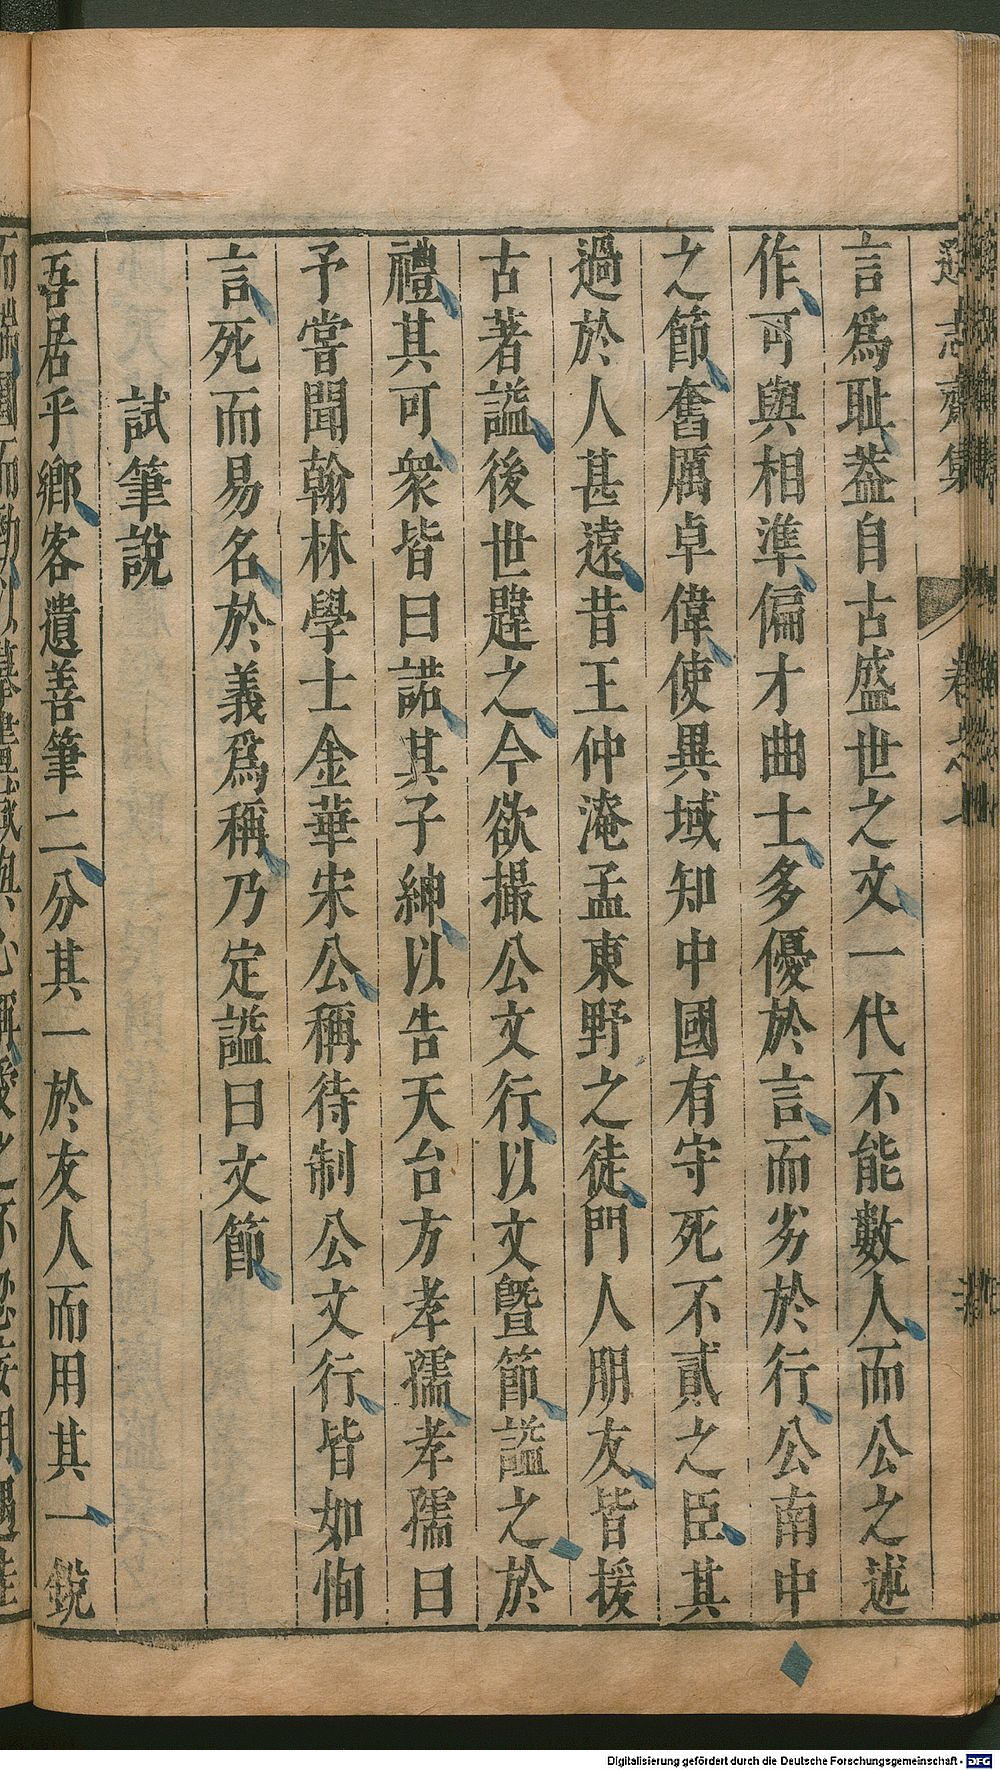 遜志齋集 卷之七
言爲耻葢自古盛世之文一代不能數人而公之述
作可與相準偏才曲士多優於言而劣於行公南中
之節奮厲卓偉使異域知中國有守死不貳之臣其
過於人甚遠昔王仲淹孟東野之徒門人朋友皆援
古著謚後世韙之今欲撮公文行以文曁節謚之於
禮其可衆皆曰諾其子紳以告天台方孝孺孝孺曰
予嘗聞翰林學士金華宋公稱待制公文行皆如恂
言死而易名於義爲稱乃定謚曰文節
試筆說
吾居乎鄉客遺善筆二分其一於友人而用其一銳
Digitalisierung gefördert durch die Deutsche Forschungsgemeinschaft - DFG